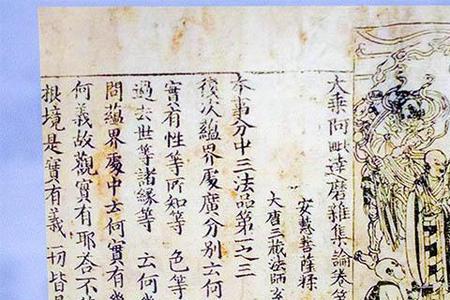 大乘阿毗達磨雜集論卷第
安慧菩薩糅
大唐三藏法師玄
本事分中三法品第一之三
復次蘊界處廣分別云何
實有性等所知等 色等
過去世等諸緣等 云何幾
問蘊界處中云何實有幾
何義故觀實有耶荅不待
根境是實有義一切皆是